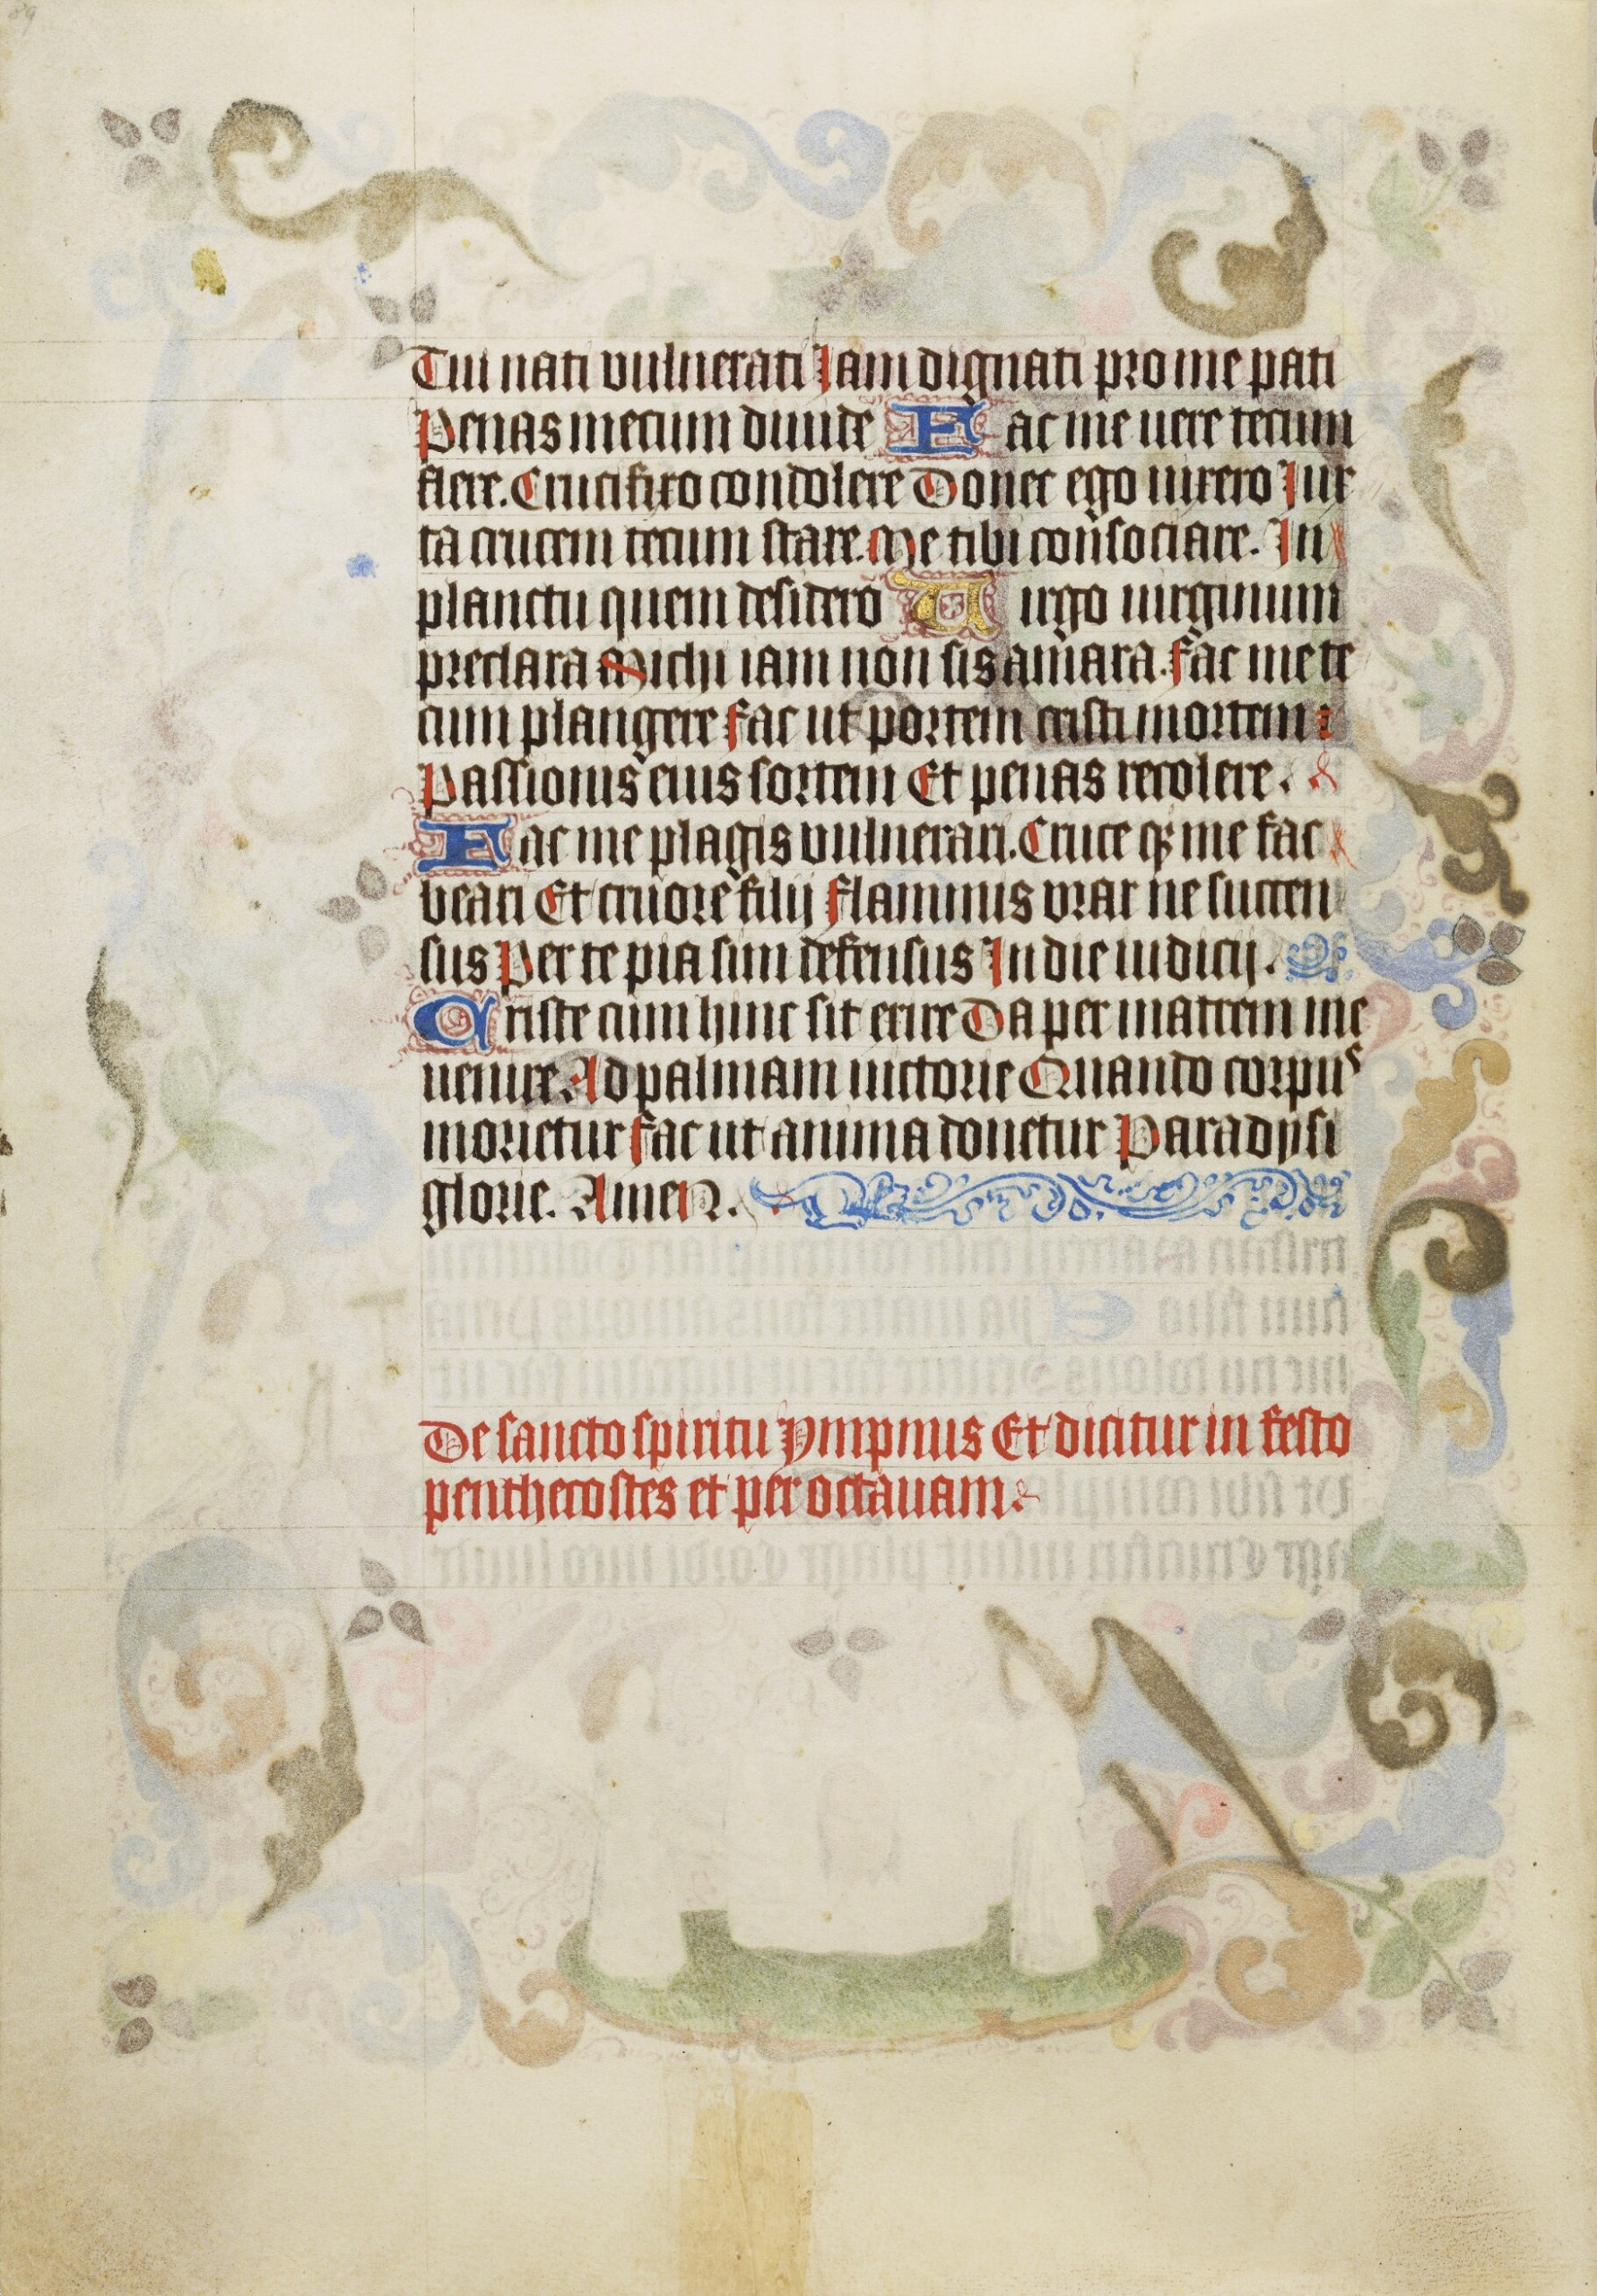 Tui nati vulnerati Iam dignati pro me pati
Penas mecum diuide Fac me uere tecum
flere. Crucifixo condolere Donec ego uixero Iux
ta crucem tecum stare. Me tibi consociare. In
planctu quem desidero Uirgo uirginum
preclara Michi iam non sis amara. Fac me te
cum plangere Fac ut portem cristi mortem
Passionis eius sortem Et penas recolere.
Fac me plagis vulnerari. Cruce qꝫ me fac
beari Et cruore filij Flammis vrar ne succen
sus Per te pia sim defensus In die iudicij.
Criste cum hinc sit exire Da per matrem me
uenire Ad palmam uictorie Quando corpus
morietur Fac ut anima donetur Paradysi
glorie. Amen.
De sancto spiritu ympnus Et dicitur in festo
penthecostes et per octauam.